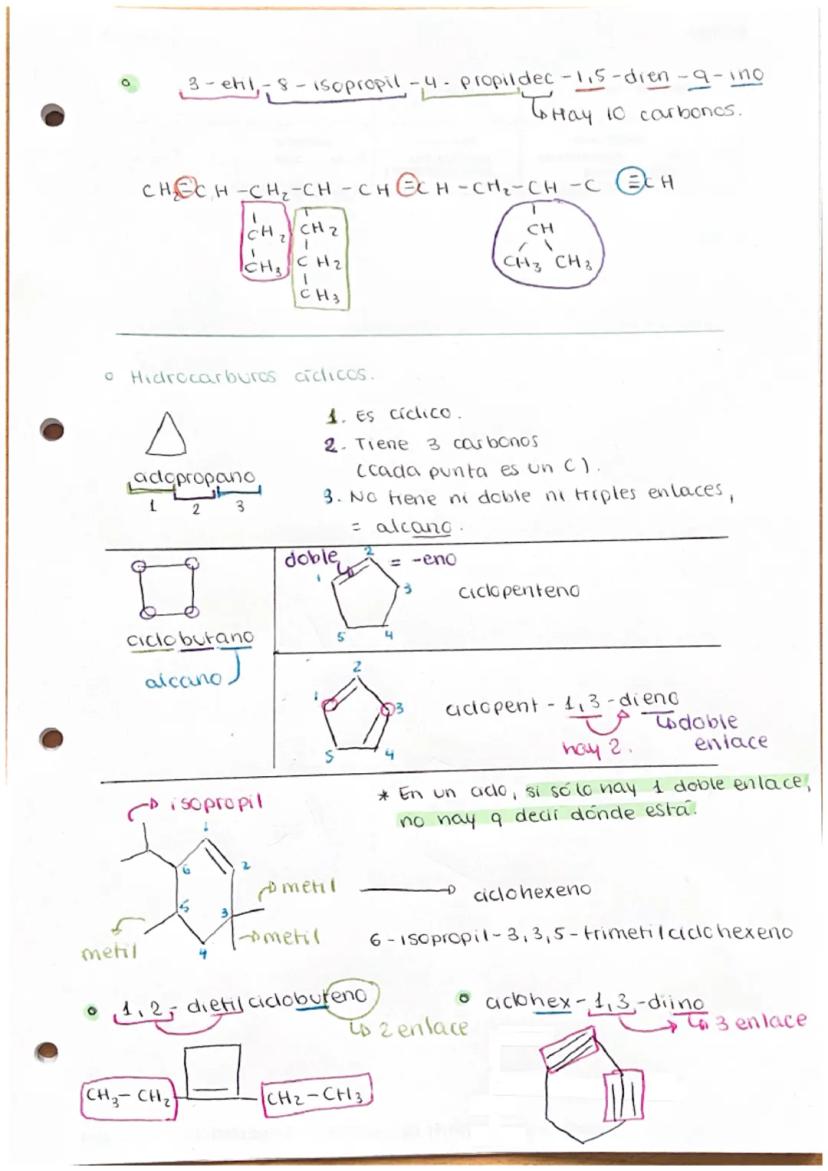 3-etil-8-isopropil-4-propildec-1,5-dien-9-ino
↳ Hay 10 carbonos.
CH₂=CH-CH₂-CH-CH=CH-CH₂-CH-C≡CH
CH₂ CH₂ CH
CH₃ CH₂ CH₃ CH₃
CH₃
Hidrocarburos cíclicos.
1. Es cíclico.
2. Tiene 3 carbonos
(cada punta es un C).
ciclopropano
1 2 3
3. No tiene ni doble ni triples enlaces,
= alcano.
doble 2 = -eno
1 3
5 4
ciclopenteno
ciclobutano
alcano
2
1 3
5 4
ciclopent-1,3-dieno
hay 2.
↳doble
enlace
* En un ciclo, si sólo hay 1 doble enlace,
no hay q decir dónde está.
isopropil
1
6 2
metil
ciclohexeno
5 3
metil
metil
4
6-isopropil-3,3,5-trimetilciclohexeno
1,2-dietilciclobuteno
↳ 2 enlace
ciclohex-1,3-diino
↳ 3 enlace
CH₃-CH₂ CH₂-CH₃